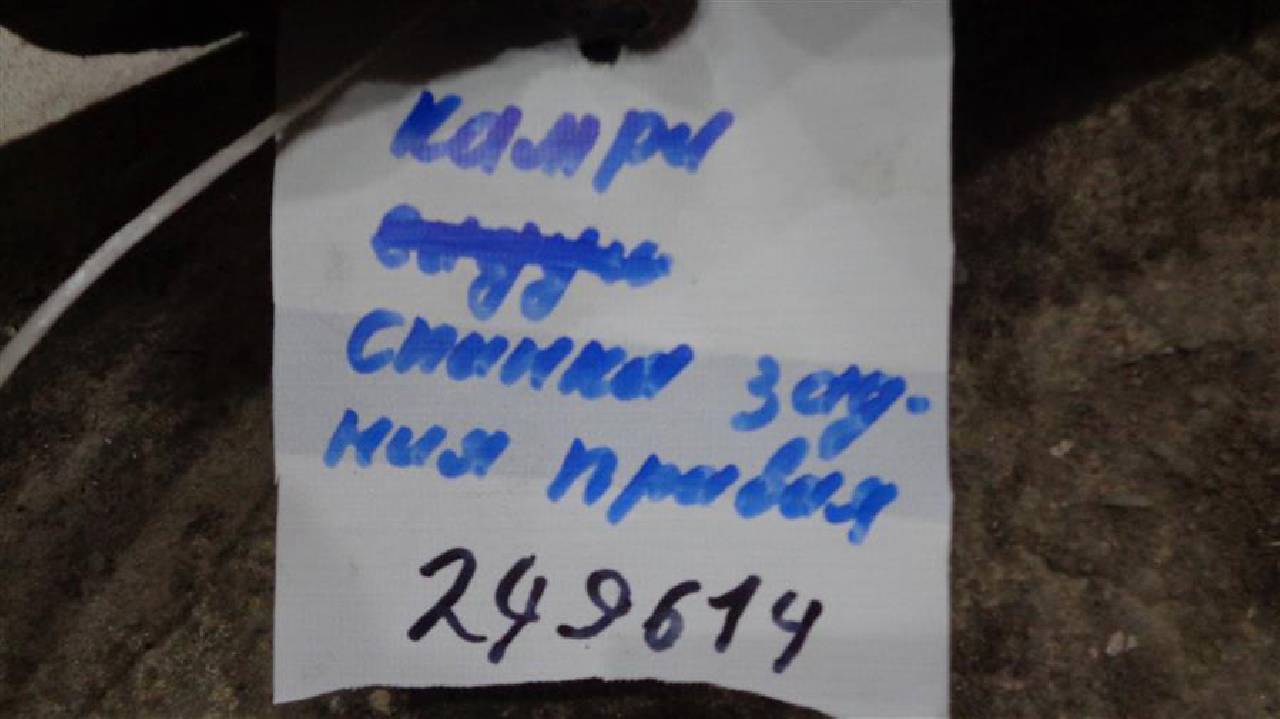 Камри
Спинка зад.
ния правая
249614